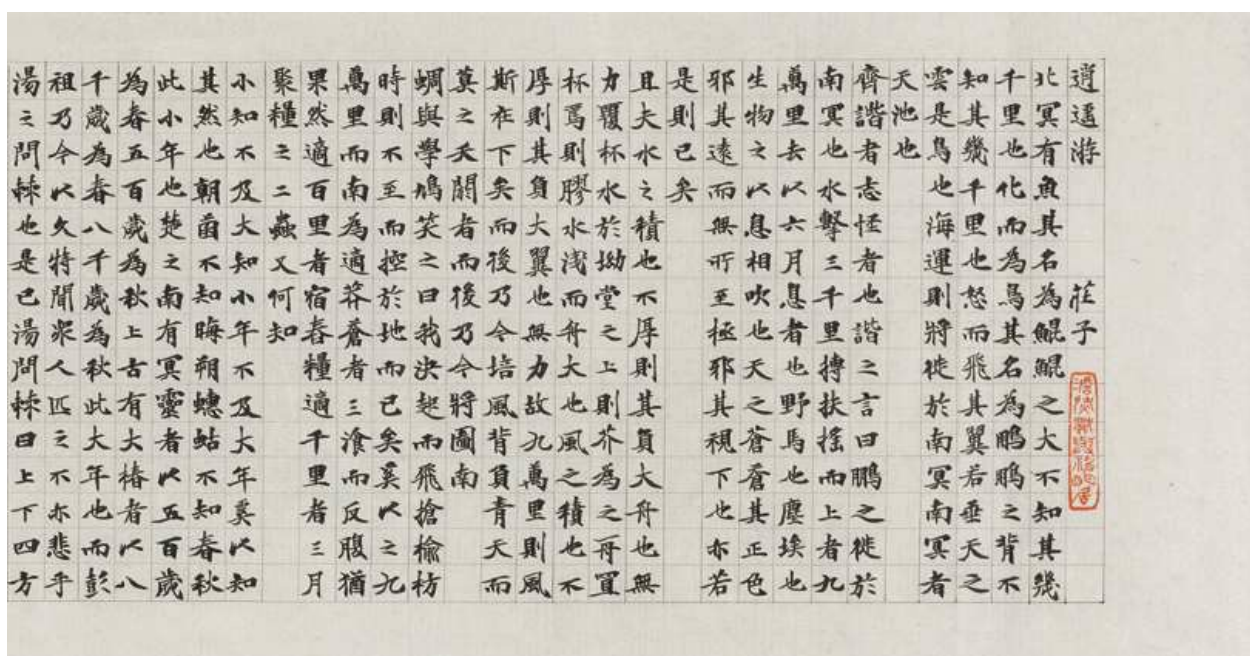 逍遥游 莊子
北冥有魚其名為鯤鯤之大不知其幾
千里也化而為鳥其名為鵬鵬之背不
知其幾千里也怒而飛其翼若垂天之
雲是鳥也海運則將徙於南冥南冥者
天池也
齊諧者志怪者也諧之言曰鵬之徙於
南冥也水擊三千里摶扶搖而上者九
萬里去以六月息者也野馬也塵埃也
生物之以息相吹也天之蒼蒼其正色
邪其遠而無所至極邪其視下也亦若
是則已矣
且夫水之積也不厚則其負大舟也無
力覆杯水於坳堂之上則芥為之舟置
杯焉則膠水淺而舟大也風之積也不
厚則其負大翼也無力故九萬里則風
斯在下矣而後乃今培風背負青天而
莫之夭閼者而後乃今將圖南
蜩與學鳩笑之曰我決起而飛搶榆枋
時則不至而控於地而已矣奚以之九
萬里而南為適莽蒼者三飡而反腹猶
果然適百里者宿舂糧適千里者三月
聚糧之二蟲又何知
小知不及大知小年不及大年奚以知
其然也朝菌不知晦朔蟪蛄不知春秋
此小年也楚之南有冥靈者以五百歲
為春五百歲為秋上古有大椿者以八
千歲為春八千歲為秋此大年也而彭
祖乃今以久特聞眾人匹之不亦悲乎
湯之問棘也是已湯問棘曰上下四方